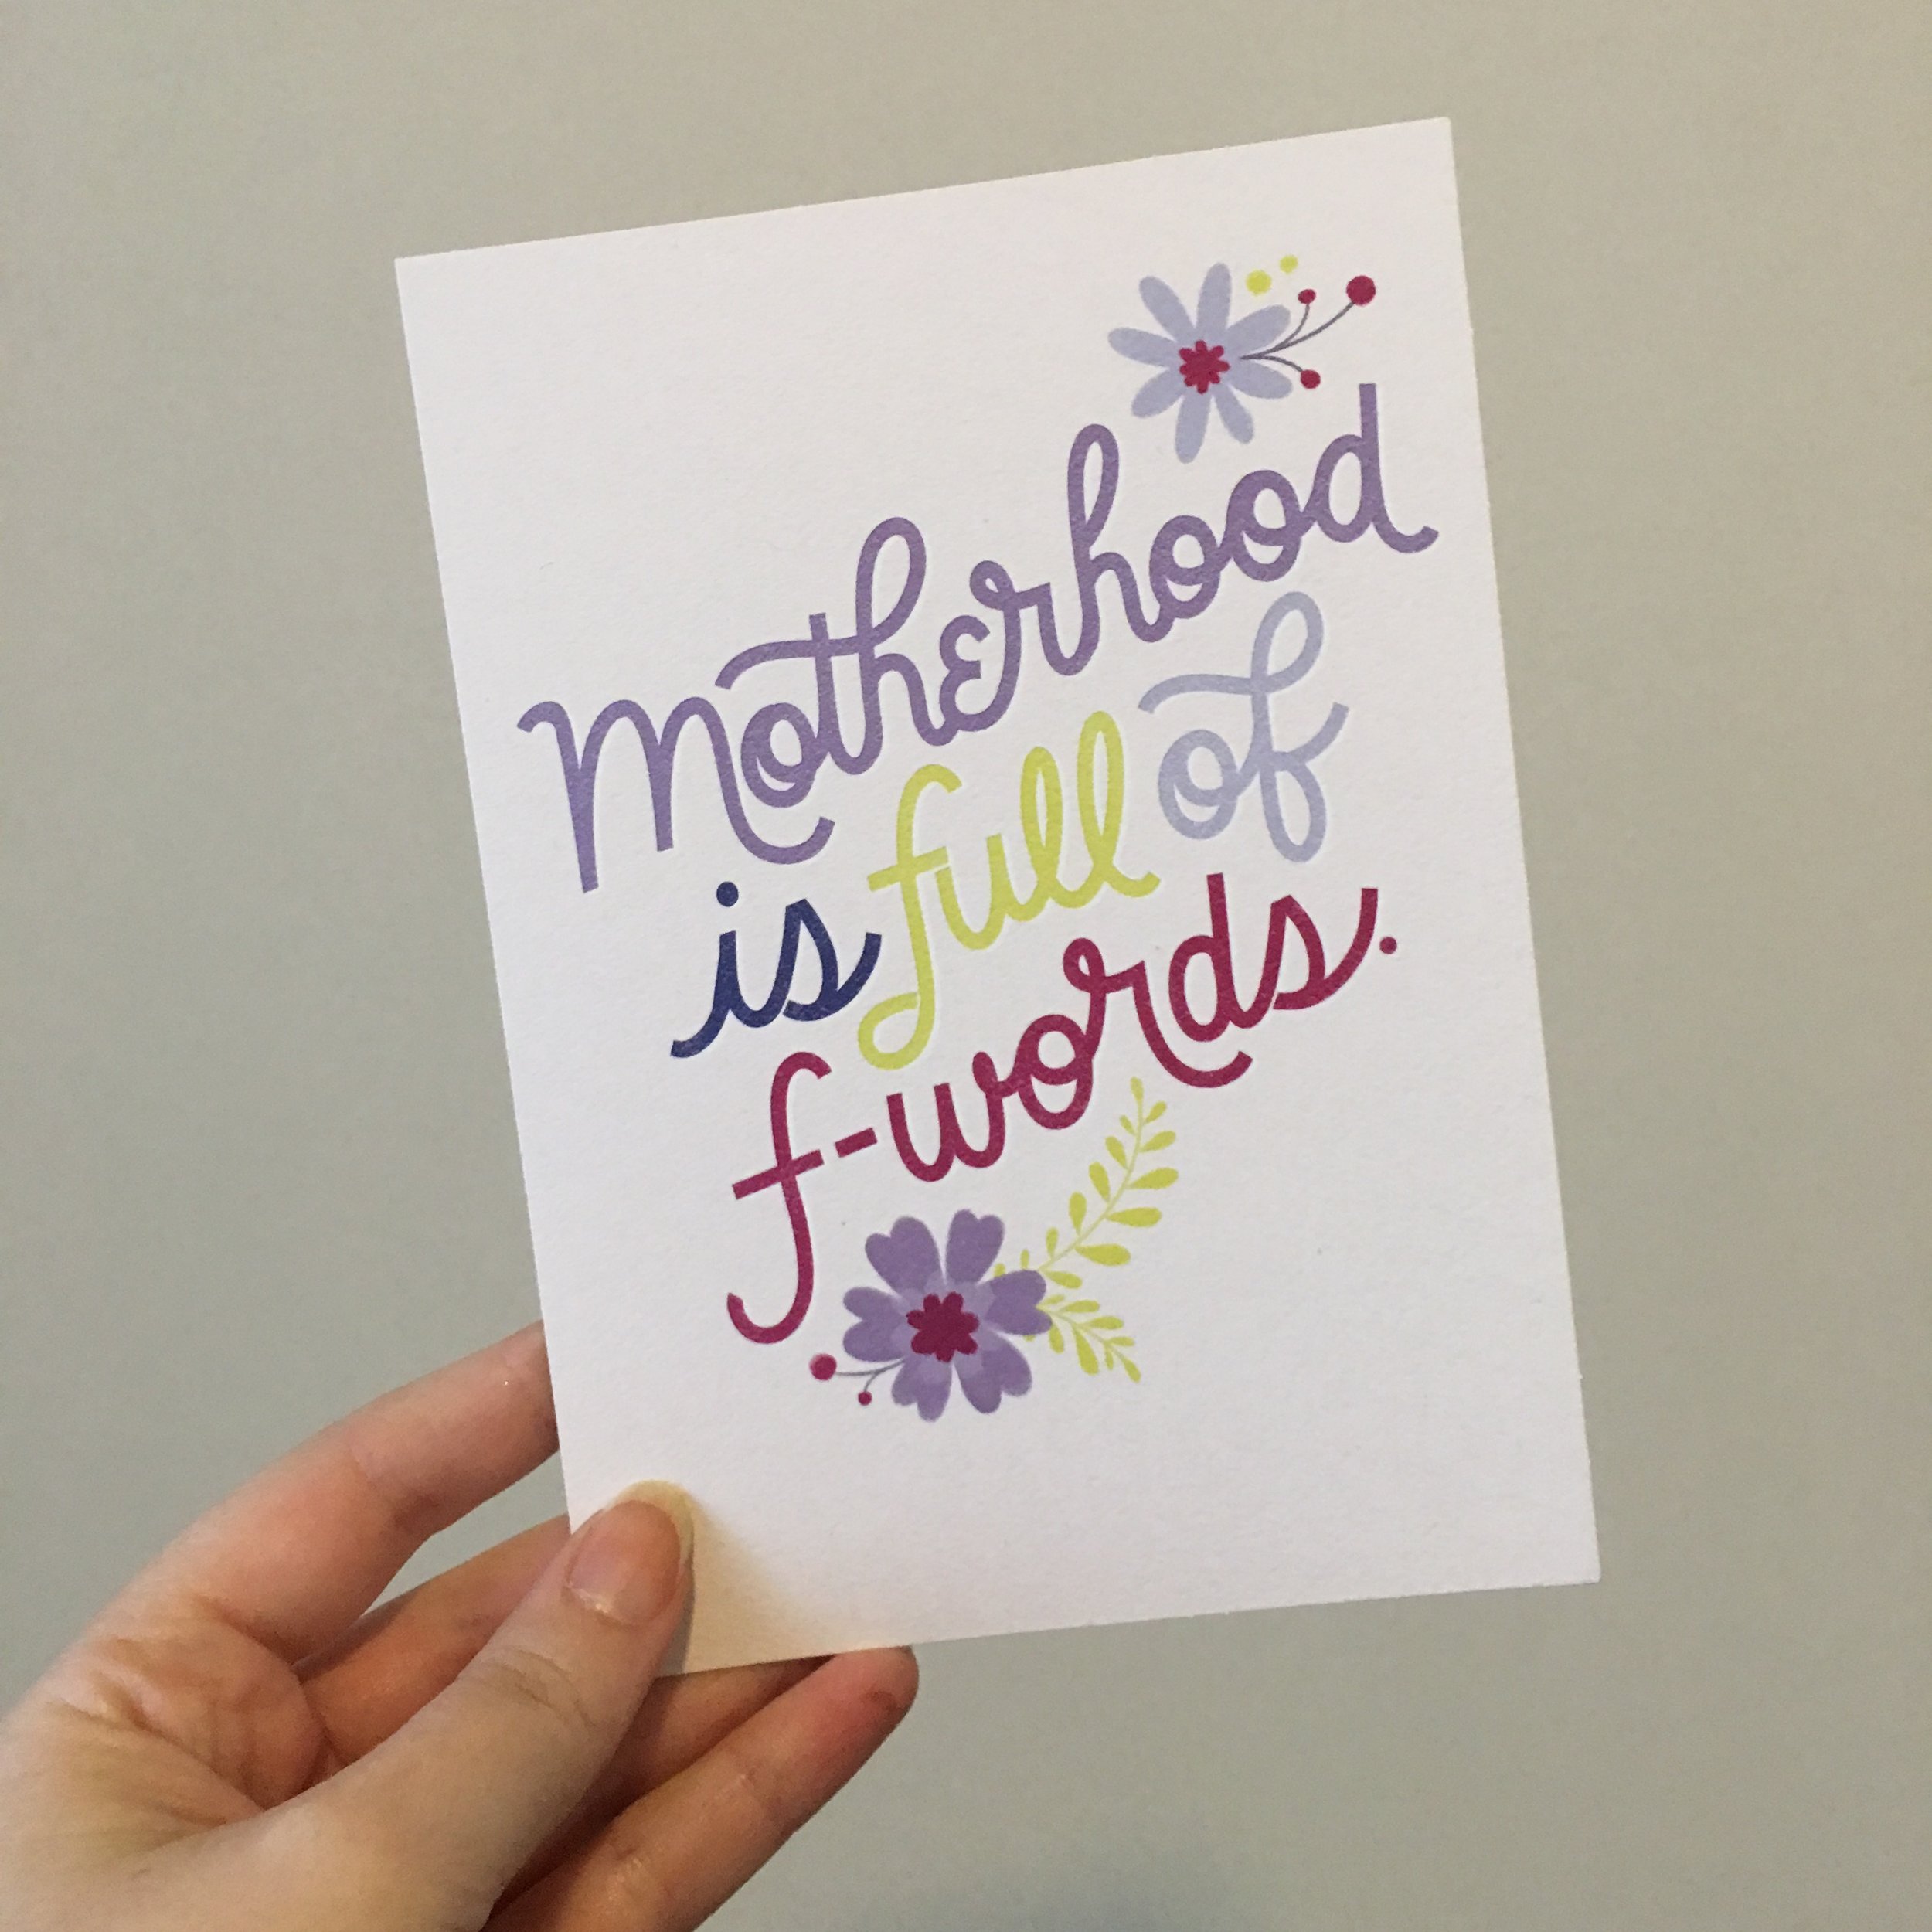 Motherhood
is full of
f-words.